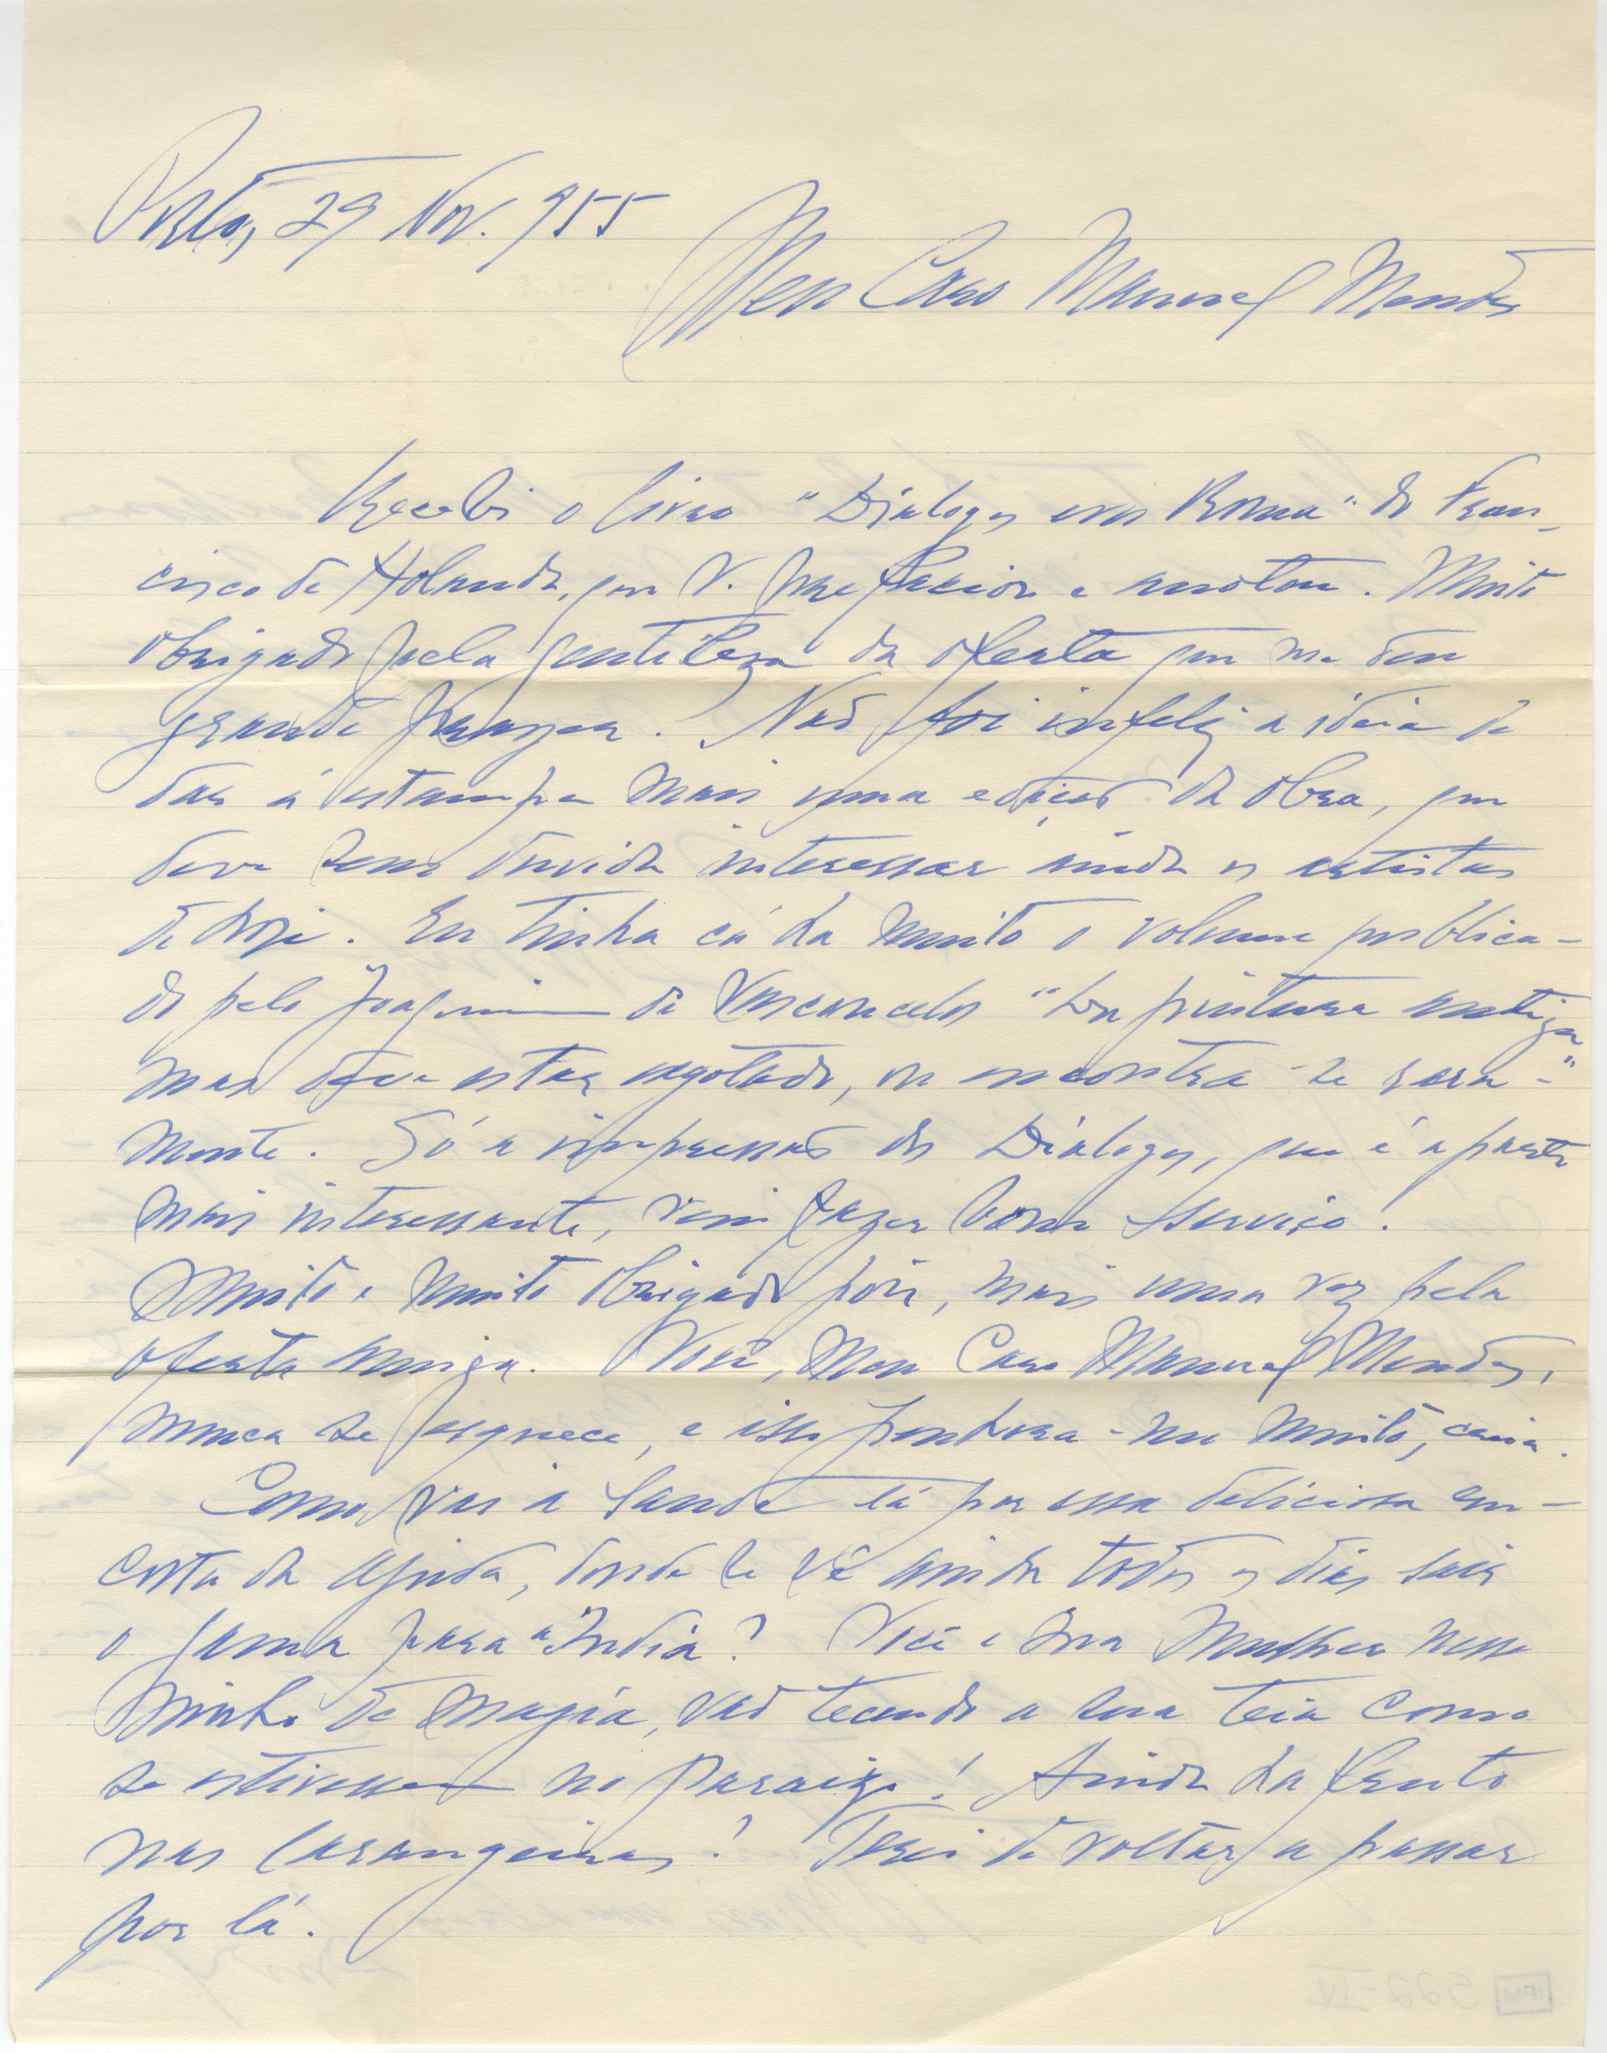 Porto, 29 Nov. 955
Meu Caro Manuel Mendes
Recebi o livro "Dialogos em Roma" de Fran-
cisco de Holanda, que V. prefaciou e anotou. Muito
obrigado pela gentileza da oferta que me deu
grande prazer. Não foi infeliz a ideia de
dar á estampa mais uma edição da obra, que
deve sem duvida interessar ainda os artistas
de hoje. Eu tinha cá ha muito o volume publica-
do pelo Joaquim de Vasconcelos "Da pintura antiga"
mas deve estar esgotado, ou encontra-se rara-
mente. Só a impressão dos Dialogos, que é a parte
mais interessante, vem fazer bom serviço!
Muito e muito obrigado pois, mais uma vez pela
oferta amiga. Você, meu Caro Manuel Mendes,
nunca se esquece, e isso penhora-me muito, creia.
Como vai a saude lá por essa deliciosa en-
costa da Ajuda, donde se vê ainda todos os dias sair
o Gama para a India? Você e sua Mulher nesse
ninho de magia, vão tecendo a sua teia como
se estivessem no Paraizo! Ainda ha fruto
nas laranjeiras? Terei de voltar a passar
por lá.
522-IV